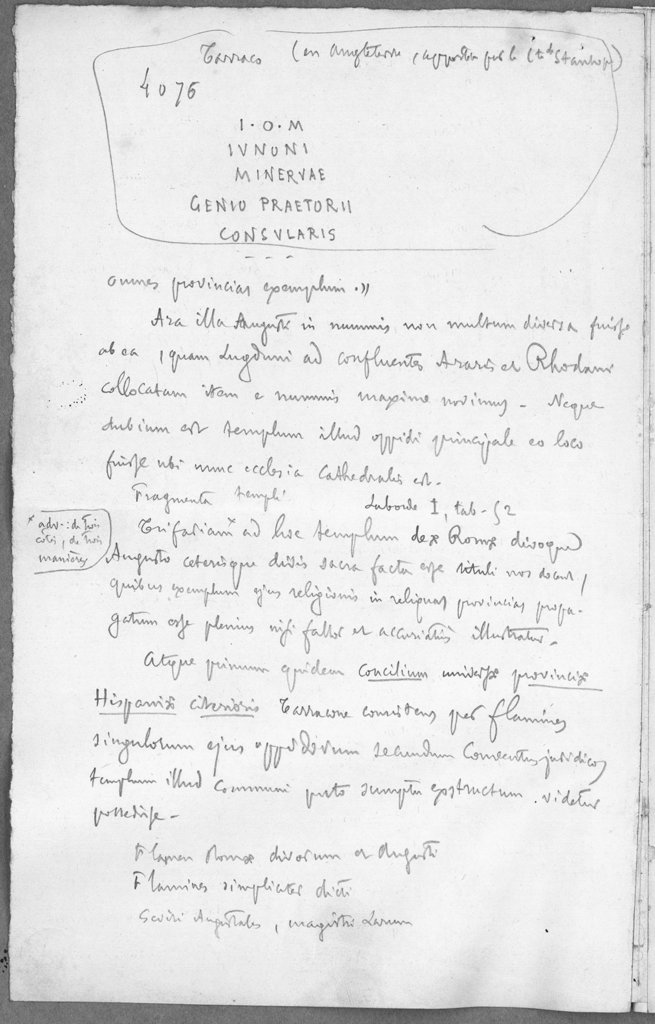 Tarraco (en Angleterre, apportée par le Stanhope)
4076
I · O · M
IVNONI
MINERVAE
GENIO PRAETORII
CONSVLARIS
- - -
omnes provincias exemplum.»
Ara illa Augusti in nummis non multum diversa fuisse
ab ea, quam Lugduni ad confluentes Araris et Rhodani
collocatam item e nummis maxime novimus - Neque
dubium est templum illud oppidi principale eo loco
fuisse ubi nunc ecclesia cathedralis est -
Fragmenta templi Laborde I, tab - 52
Trifariam x ad hoc templum deæ Romæ divoque
x adv : de trois
côtés, de trois
manières
Augusto ceterisque divis sacra facta esse tituli nos docent,
quibus exemplum ejus religionis in reliquas provincias propa-
gatum esse plenius nisi fallor et accuratius illustratur -
Atque primum quidem concilium universæ provinciæ
Hispaniæ citerioris Tarracone consistens per flamines
singulorum ejus oppidorum secundum conventus juridicos
templum illud communi puto sumptu exstructum videtur
possedisse -
Flamen Romæ divorum et Augusti
Flamines simpliciter dicti
Seviri Augustales, magistri Larum